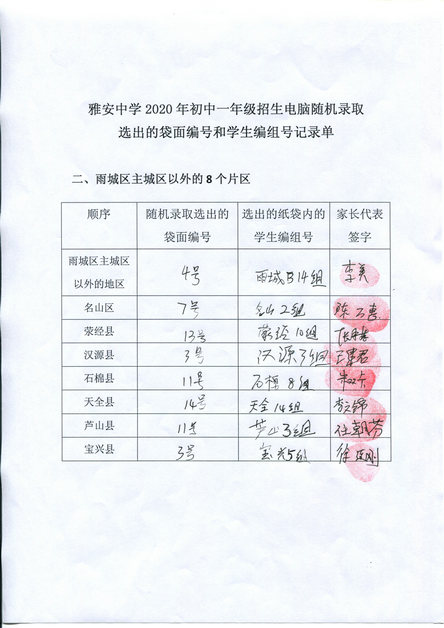 雅安中学2020年初中一年级招生电脑随机录取
选出的袋面编号和学生编组号记录单
二、雨城区主城区以外的8个片区
顺序 随机录取选出的袋面编号 选出的纸袋内的学生编组号 家长代表签字
雨城区主城区以外的地区 4号 雨城B14组
名山区 7号 名山2组
荥经县 13号 荥经10组
汉源县 3号 汉源3组
石棉县 11号 石棉8组
天全县 14号 天全14组
芦山县 11号 芦山3组
宝兴县 3号 宝兴5组